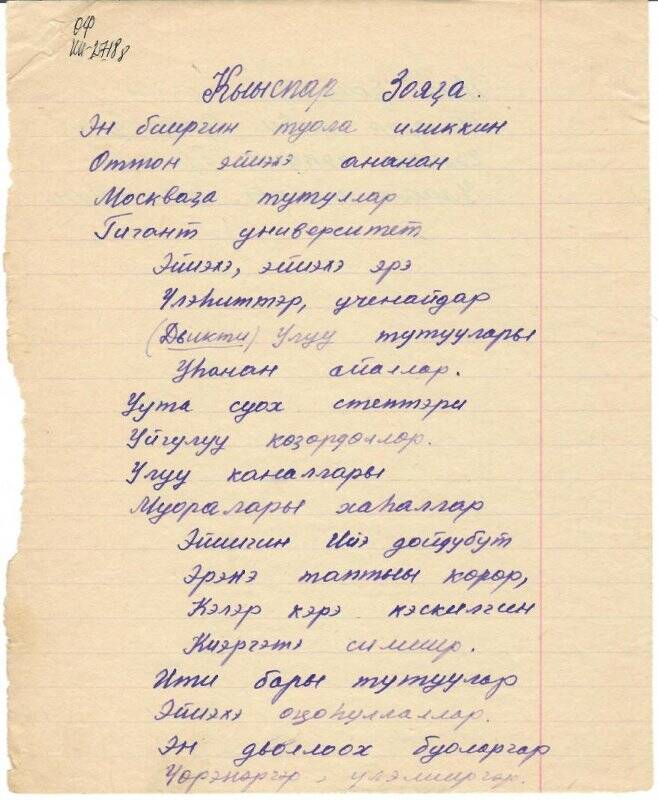 ОФ
КП-27188
Кыыспар Зояҕа.
Эн бииргин туола иликкин
Оттон эйиэхэ ананан
Москваҕа тутуллар
Гигант университет
Эйиэхэ, эйиэхэ эрэ
Үлэһиттэр, ученайдар
(Дьикти) Улуу тутуулары
Уһанан айаллар.
Уута суох стептэри
Уйгулуу көҕөрдөллөр.
Улуу каналлары
Муоралары хаһаллар
Эйигин Ийэ дойдубут
Эрэнэ таптыы көрөр,
Кэлэр кэрэ кэскилгин
Киэргэтэ силигир.
Ити бары тутуулар
Эйиэхэ оҥоһуллаллар.
Эн дьоллоох буоларгар
Үөрэнэргэр, үлэлииргэр.